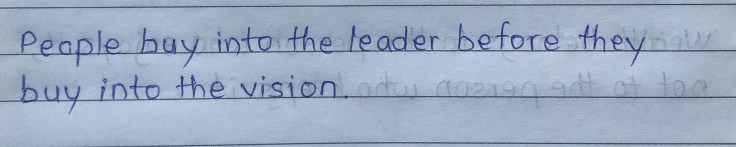 People buy into the leader before they
buy into the vision.